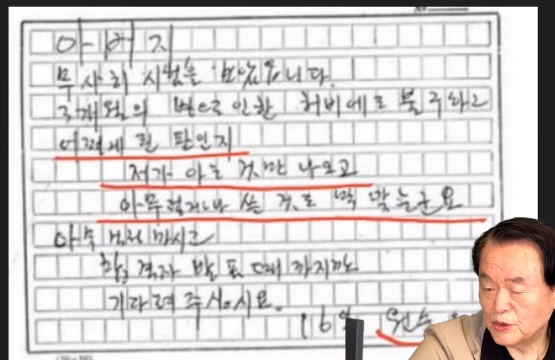 아버지
무사히 시험을 마쳤습니다.
3개월의 병으로 인한 허비에도 불구하고
어떻게 된 판인지
저가 아는 것만 나오고
아무렇거나 쓴 것도 딱 맞는군요
아무 걱정 마시고
합격자 발표 때까지만
기다려 주십시요.
16일